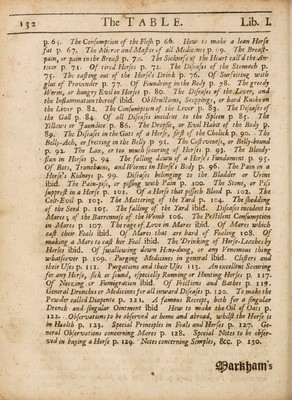 132 The TABLE. Lib. I.
p. 65. The Consumption of the Flesh p 66. How to make a lean Horse
fat p. 67. The Mirror and Master of all Medicines p 69. The Breast-
pain, or pain in the Breast p. 70. The Sickness of the Heart call'd the An-
ticor p. 71. Of tired Horses p. 72. The Diseases of the Stomach p.
75. The casting out of the Horse's Drink p. 76. Of Surfeiting with
glut of Provender p. 77. Of Foundring in the Body p. 78. The greedy
Worm, or hungry Evil in Horses p. 80. The Diseases of the Liver, and
the Inflammation thereof ibid. Obstructions, Stoppings, or hard Knobs on
the Liver p. 82. The Consumption of the Liver p. 83. The Diseases of
the Gall p. 84. Of all Diseases incident to the Spleen p. 85. The
Yellows or Jaundise p. 86. The Dropsie, or Evil Habit of the Body p.
89. The Diseases in the Guts of a Horse, first of the Cholick p. 90. The
Belly-Ach, or fretting in the Belly p. 91. The Costiveness, or Belly-bound
p. 92. The Lax, or too much scouring of Horses p. 93. The Bloody-
flux in Horses p. 94. The falling down of a Horse's Fundament p. 95.
Of Bots, Truncheons, and Worms in Horse's Body p. 96. The Pain in a
Horse's Kidneys p 99. Diseases belonging to the Bladder or Urine
ibid. The Pain-piss, or pissing with Pain p. 100. The Stone, or Piss
supprest in a Horse p. 101. Of a Horse that pisseth Blood p. 102. The
Colt-Evil p. 103. The Mattering of the Yard p. 104. The shedding
of the Seed p. 105. The falling of the Yard ibid. Diseases incident to
Mares; of the Barrenness of the Womb p. 106. The Pestilent Consumption
in Mares p 107. The rage of Love in Mares ibid. Of Mares which
cast their Foals ibid. Of Mares that are hard of Foaling p. 108. Of
making a Mare to cast her Foal ibid. The Drinking of Horse-Leeches by
Horses ibid. Of swallowing down Hen-dung, or any Venomous thing
whatsoever p. 109. Purging Medicines in general ibid. Clisters and
their Uses p. 111. Purgations and their Uses p. 113. An excellent Scouring
for any Horse, sick or sound, especially Running or Hunting Horses p. 117.
Of Neezing or Fumigation ibid. Of Frictions and Bathes p. 119.
General Drenches or Medicines for all inward Diseases p. 120. To make the
Powder called Diapente p. 121. A famous Receipt, both for a singular
Drench and singular Ointment ibid. How to make the Oil of Oats p.
122. Observations to be observed at home and abroad, whilst the Horse is
in Health p. 123. Special Principles in Foals and Horses p. 127. Ge-
neral Observations concerning Mares p. 128. Special Notes to be obser-
ved in buying a Horse p. 129. Notes concerning Simples, &c. p. 130.
Markham's